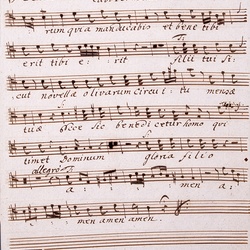 rum quia manducabis et bene tibi
erit tibi erit filii tui si-
cut novellae olivarum circuitu mensae
tuae Ecce sic benedicetur homo qui
timet Dominum gloria filio
allegro
a- men a-
men amen amen.